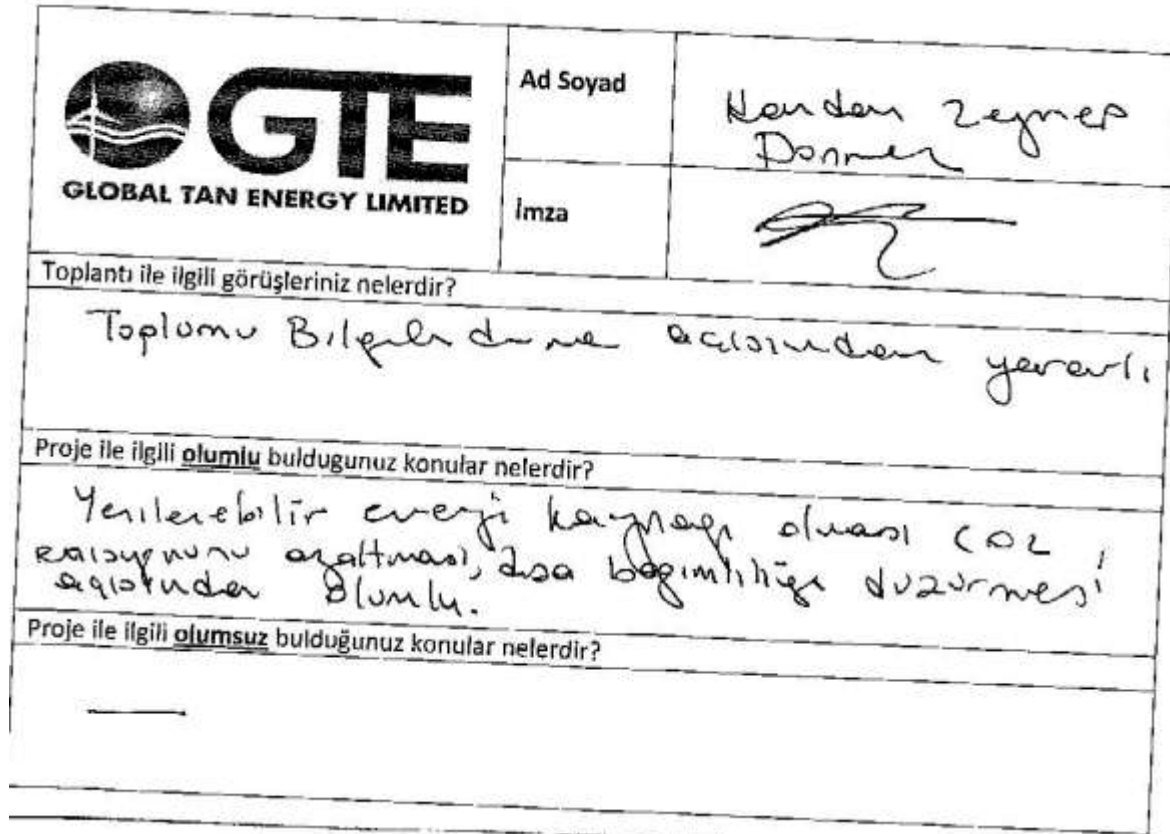 GTE
GLOBAL TAN ENERGY LIMITED
Ad Soyad
Handan Zeynep
Dönmez
İmza
Toplantı ile ilgili görüşleriniz nelerdir?
Toplumu Bilgilendirme açısından yararlı
Proje ile ilgili olumlu buldugunuz konular nelerdir?
Yenilenebilir enerji kaynağı olması CO2
emisyonunu azaltması, dışa bağımlılığı
açısından olumlu.
Proje ile ilgili olumsuz bulduğunuz konular nelerdir?